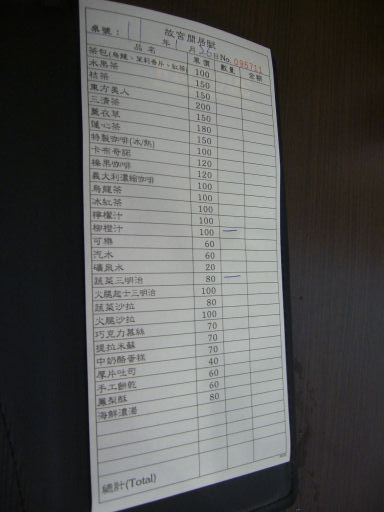 故宮閒居賦
桌號：11 年 1 月 30 日 No. 095711
品名 單價 數量 金額
茶包(烏龍、茉莉香片、紅茶) 100
水果茶 150
桔茶 150
東方美人 200
三清茶 150
薰衣草 180
蓮心茶 150
特製咖啡(冰/熱) 100
卡布奇諾 120
榛果咖啡 120
義大利濃縮咖啡 100
烏龍茶 100
冰紅茶 100
檸檬汁 100
柳橙汁 100 一
可樂 60
汽水 60
礦泉水 20
蔬菜三明治 80 一
火腿起士三明治 100
蔬菜沙拉 80
火腿沙拉 100
巧克力慕絲 70
提拉米蘇 70
中奶酪蛋糕 70
厚片吐司 40
手工餅乾 60
鳳梨酥 60
海鮮濃湯 80
總計(Total)